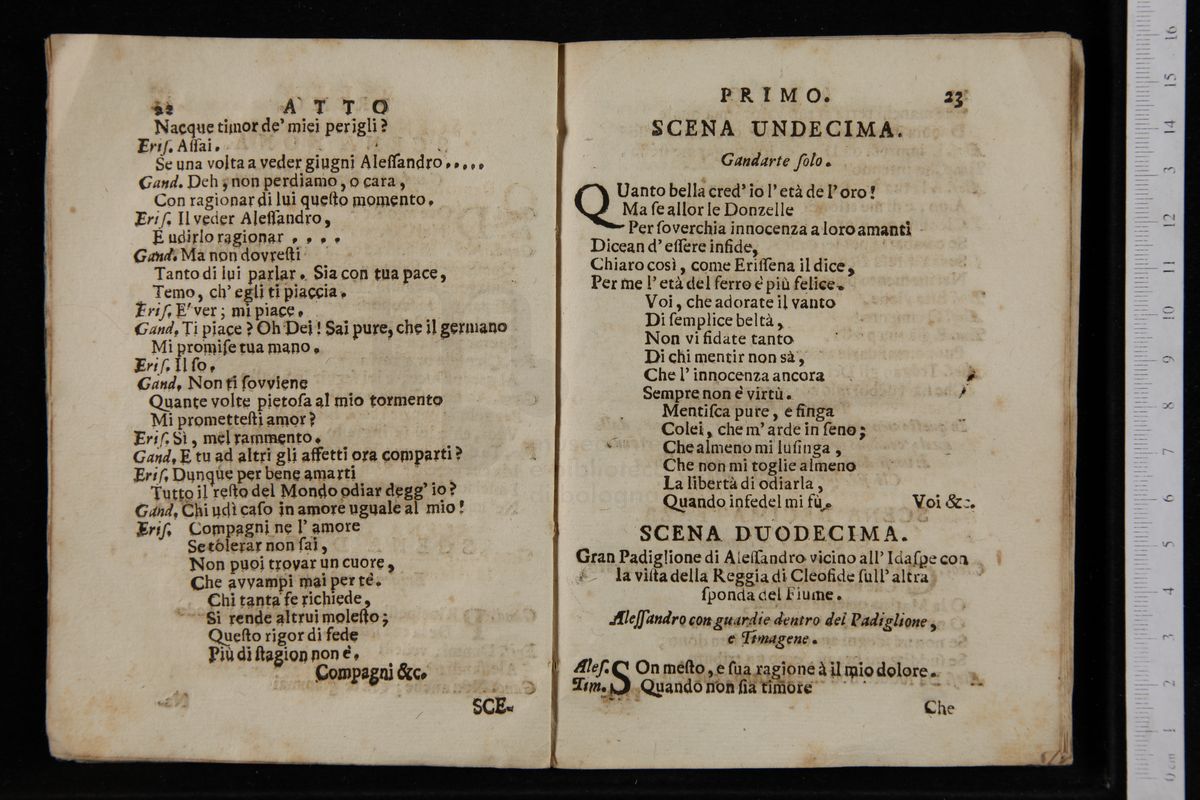 22 ATTO
Nacque timor de' miei perigli?
Eriſ. Aſſai.
Se una volta a veder giugni Aleſſandro.....
Gand. Deh, non perdiamo, o cara,
Con ragionar di lui queſto momento.
Eriſ. Il veder Aleſſandro,
E udirlo ragionar ....
Gand. Ma non dovreſti
Tanto di lui parlar. Sia con tua pace,
Temo, ch' egli ti piaccia.
Eriſ. E' ver; mi piace.
Gand. Ti piace? Oh Dei! Sai pure, che il germano
Mi promiſe tua mano.
Eriſ. Il ſo.
Gand. Non ti ſovviene
Quante volte pietoſa al mio tormento
Mi prometteſti amor?
Eriſ. Sì, mel rammento.
Gand. E tu ad altri gli affetti ora comparti?
Eriſ. Dunque per bene amarti
Tutto il reſto del Mondo odiar degg' io?
Gand. Chi udì caſo in amore uguale al mio!
Eriſ. Compagni ne l' amore
Se tolerar non ſai,
Non puoi trovar un cuore,
Che avvampi mai per tè.
Chi tanta fe richiede,
Si rende altrui moleſto;
Queſto rigor di fede
Più di ſtagion non è.
Compagni &c.
SCE-
PRIMO. 23
SCENA UNDECIMA.
Gandarte ſolo.
QUanto bella cred' io l' età de l' oro!
Ma ſe allor le Donzelle
Per ſoverchia innocenza a loro amanti
Dicean d' eſſere infide,
Chiaro così, come Eriſſena il dice,
Per me l' età del ferro è più felice.
Voi, che adorate il vanto
Di ſemplice beltà,
Non vi fidate tanto
Di chi mentir non sà,
Che l' innocenza ancora
Sempre non è virtù.
Mentiſca pure, e finga
Colei, che m' arde in ſeno;
Che almeno mi luſinga,
Che non mi toglie almeno
La libertà di odiarla,
Quando infedel mi fù. Voi &c.
SCENA DUODECIMA.
Gran Padiglione di Aleſſandro vicino all' Idaſpe con
la viſta della Reggia di Cleofide ſull' altra
ſponda del Fiume.
Aleſſandro con guardie dentro del Padiglione,
e Timagene.
Aleſ. SOn meſto, e ſua ragione à il mio dolore.
Tim. Quando non ſia timore
Che